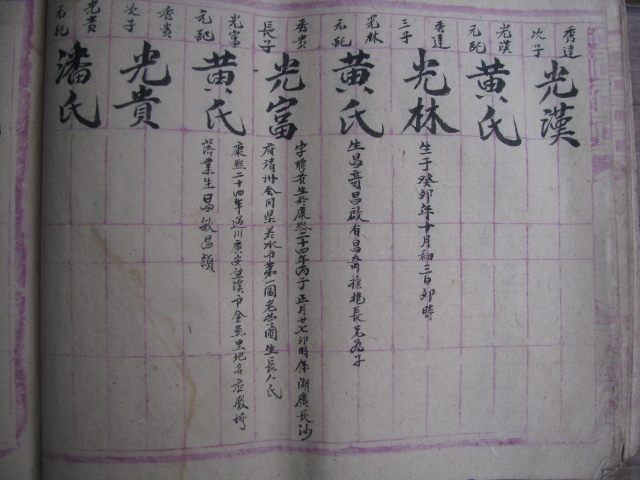 秀達
次子
光漢
光漢
元配
黄氏
秀達
三子
光林
生于癸卯年十月初三日卯時
光林
元配
黄氏
生昌奇昌啟有昌奇撫抱長兄為子
秀貴
長子
光富
字聘貴生於康熙二十四年丙子正月廿七卯時係湖廣長沙
府靖州會同県若水市第一圖老 生長人氏
光富
元配
黄氏
康熙二十四年過川廣安 溪市金 里地名 鳳
落業生昌敏昌額
秀貴
次子
光貴
光貴
元配
潘氏